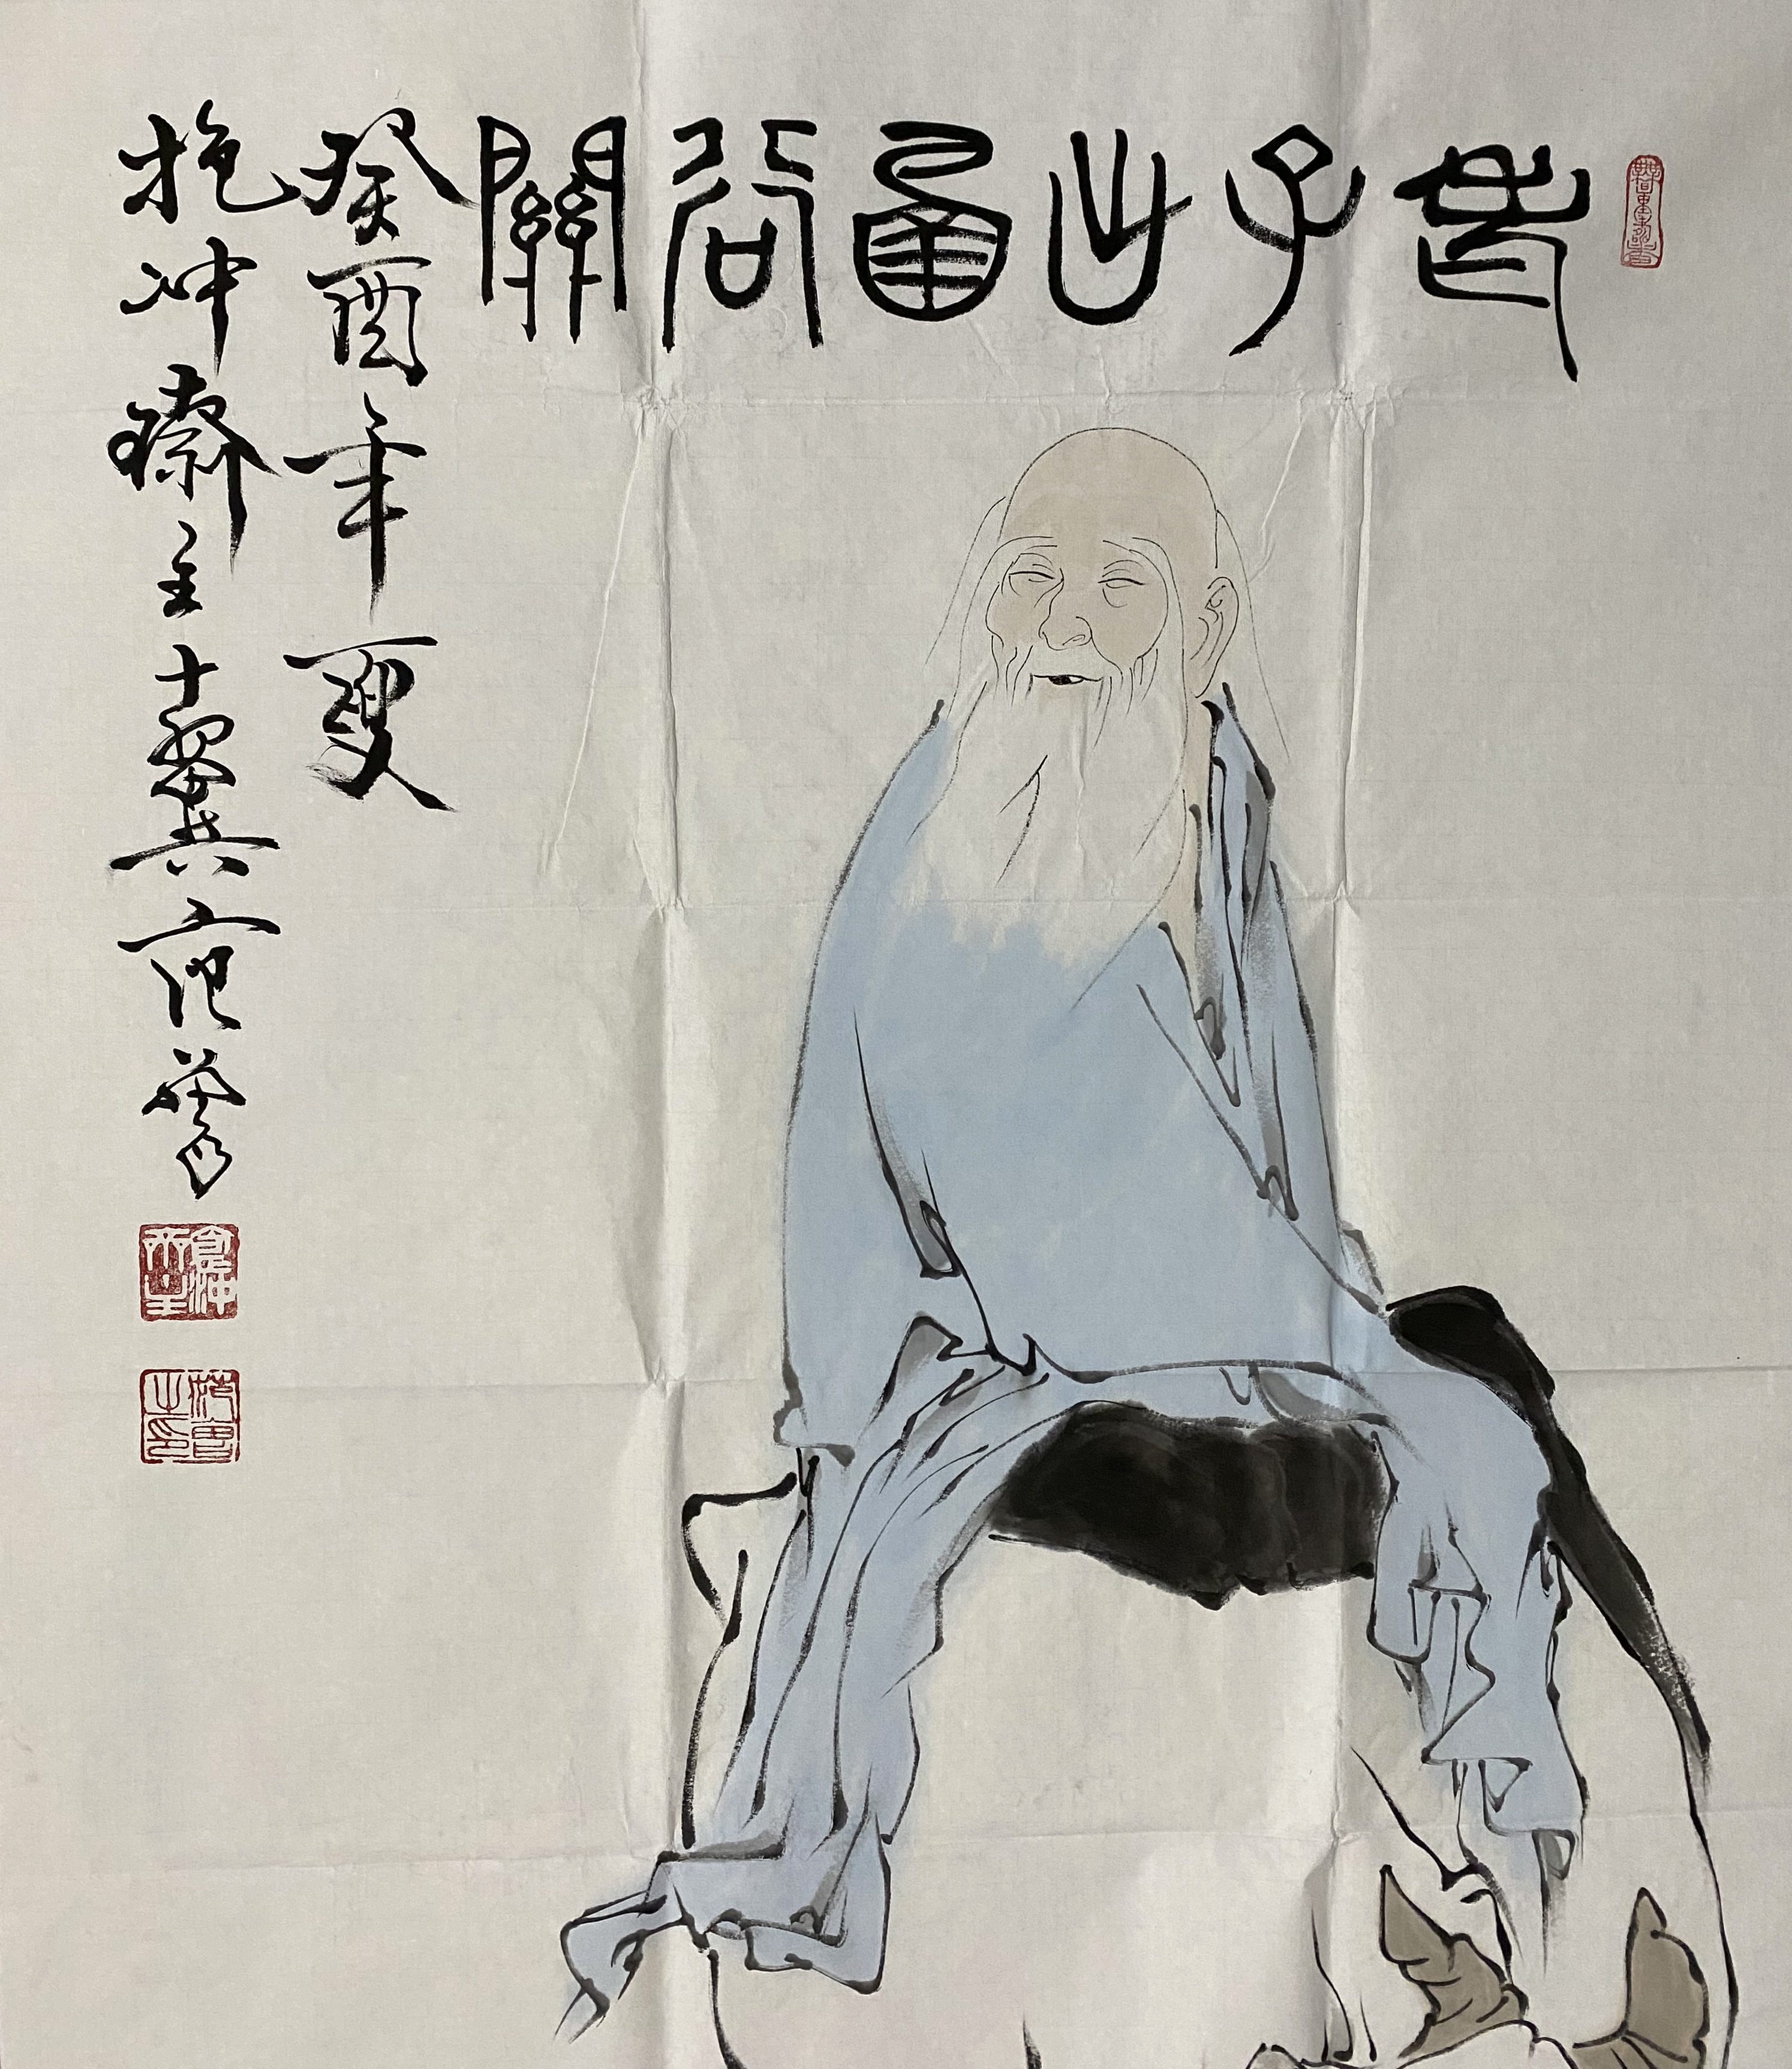 老子出函谷關
癸酉年夏
抱冲齋主十翼范曾